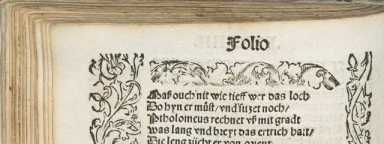 Folio
Maß ouch nit wie tieff wer das loch
Do hyn er müst / vnd fu̇ꝛet noch /
Ptholomeus rechnet vß mit gradt
was lang vnd breyt das ertrich hatt /
Die leng zücht er von orient